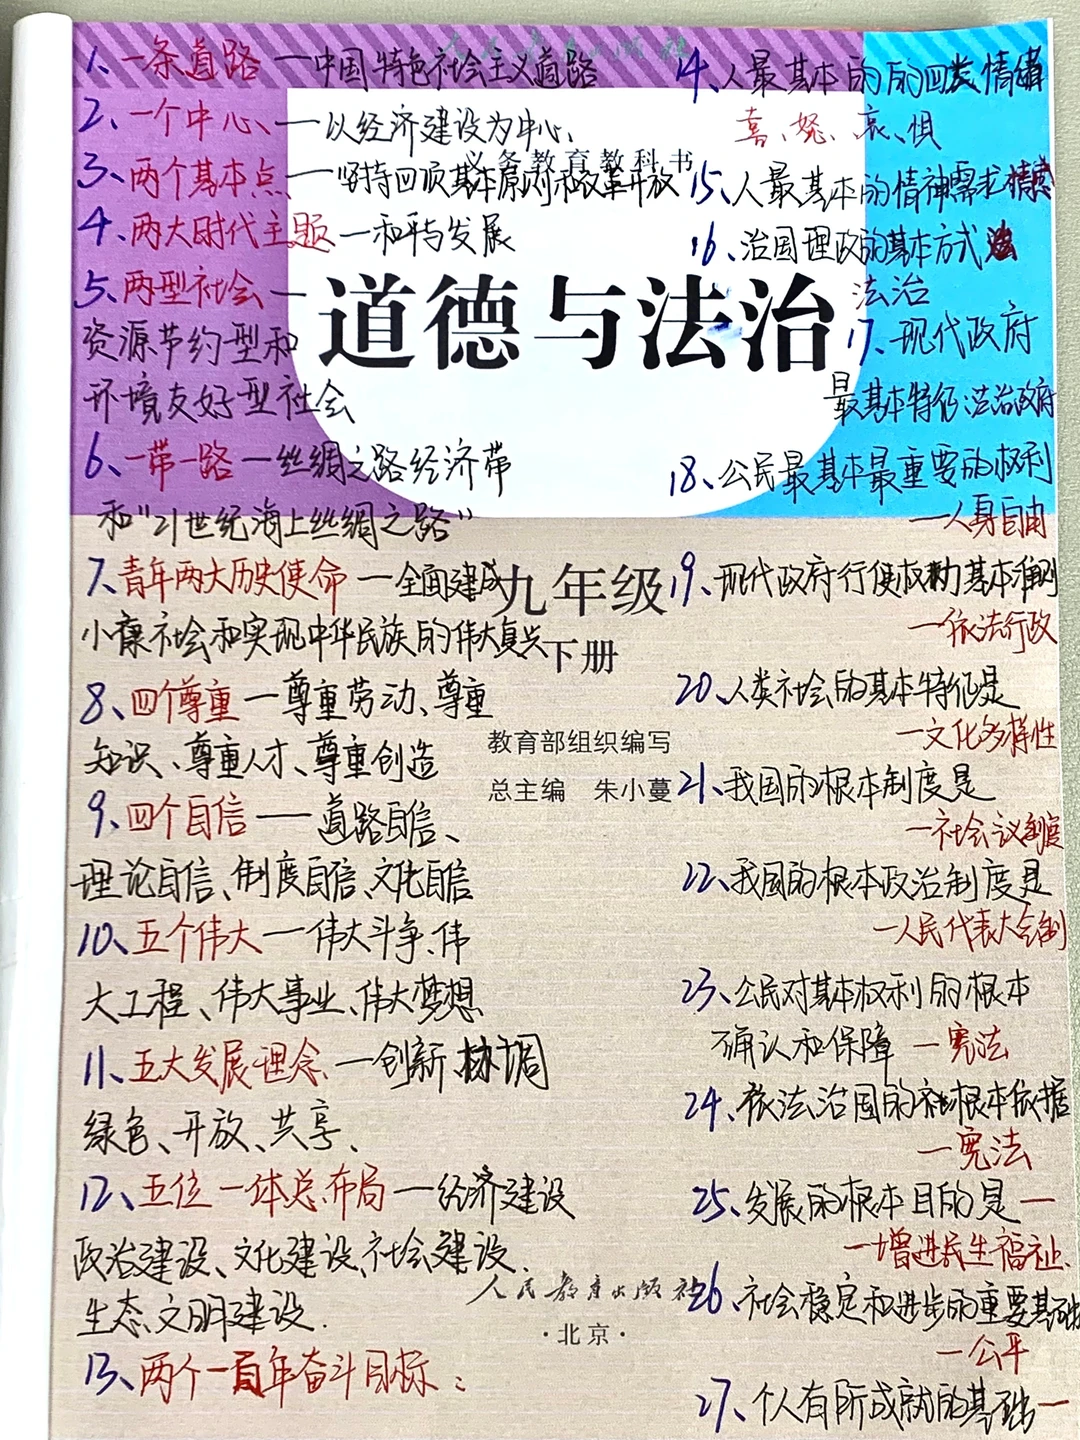 1、一条道路—中国特色社会主义道路
2、一个中心、—以经济建设为中心、
3、两个基本点—坚持四项基本原则和改革开放
4、两大时代主题—和平与发展
5、两型社会—
资源节约型和
环境友好型社会
6、一带一路—丝绸之路经济带
和"21世纪海上丝绸之路"
7、青年两大历史使命—全面建成
小康社会和实现中华民族的伟大复兴
8、四个尊重—尊重劳动、尊重
知识、尊重人才、尊重创造
9、四个自信—道路自信、
理论自信、制度自信、文化自信
10、五个伟大—伟大斗争、伟
大工程、伟大事业、伟大梦想
11、五大发展理念、—创新 协调
绿色、开放、共享、
12、五位一体总布局—经济建设
政治建设、文化建设、社会建设、
生态文明建设.
13、两个一百年奋斗目标:
义务教育教科书
道德与法治
九年级
下册
教育部组织编写
总主编 朱小蔓
人民教育出版社
·北京·
14、人最基本的的四类情绪
喜、怒、哀、惧
15、人最基本的精神需求情感
16、治国理政的基本方式
法治
17、现代政府
最基本特征:法治政府
18、公民最基本最重要的权利
—人身自由
19、现代政府行使权力基本准则
—依法行政
20、人类社会的基本特征是
—文化多样性
21、我国的根本制度是
—社会议制度
22、我国的根本政治制度是
—人民代表大会制
23、公民对基本权利的根本
确认和保障—宪法
24、依法治国的根本依据
—宪法
25、发展的根本目的是—
—增进民生福祉、
26、社会稳定和进步的重要基础
—公平
27、个人有所成就的基础—